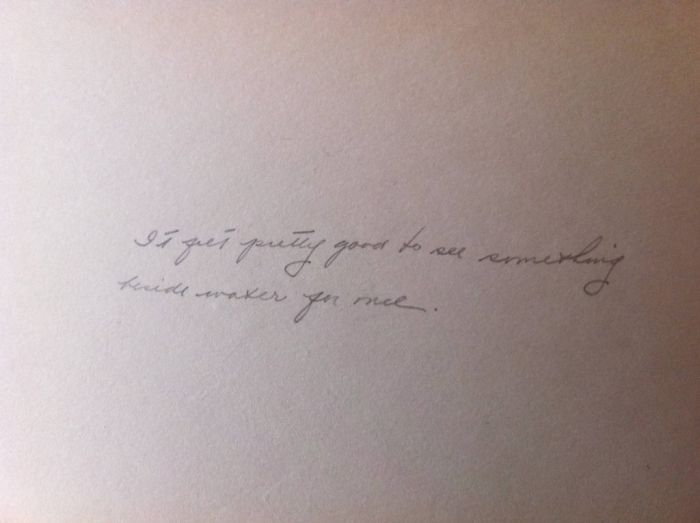 It felt pretty good to see something
beside water for once.